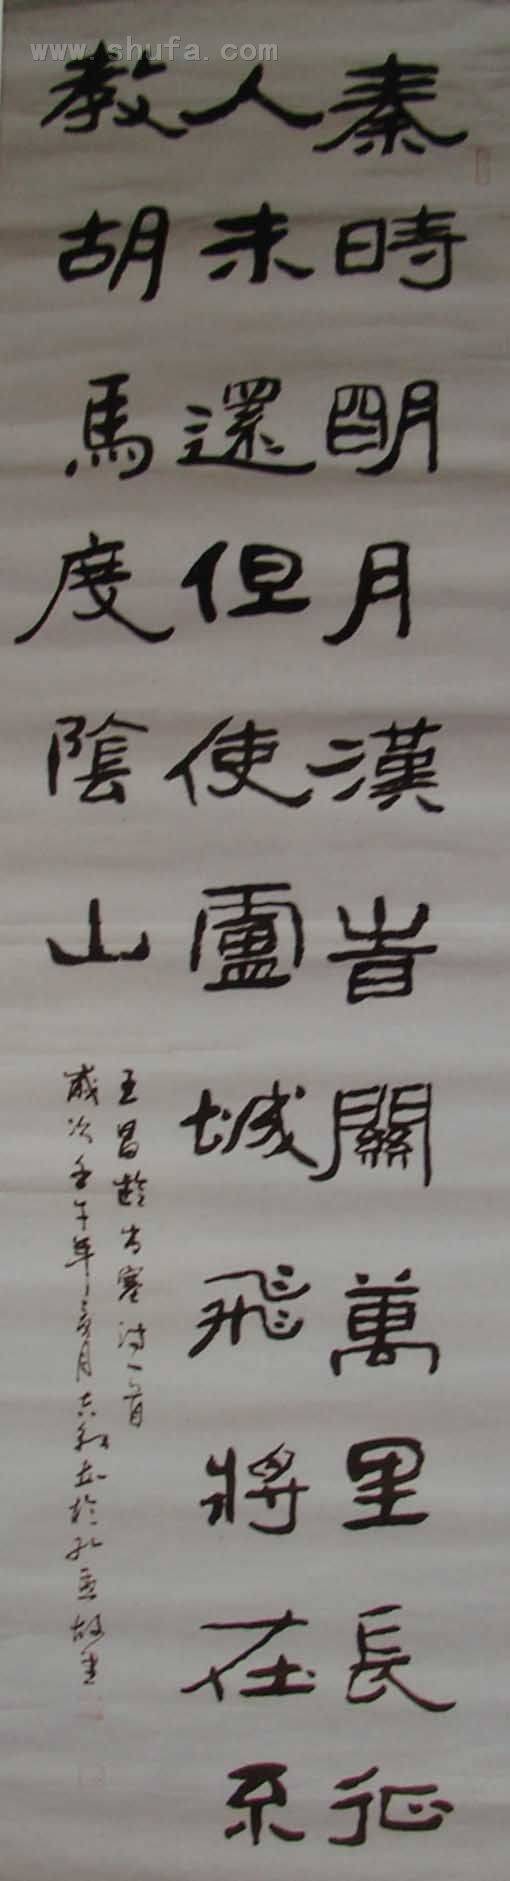 www.shufa.com
秦時明月漢旹關萬里長征
人未還但使盧城飛將在不
教胡馬度陰山
王昌齡出塞詩一首
歲次壬午年月於孔孟故里